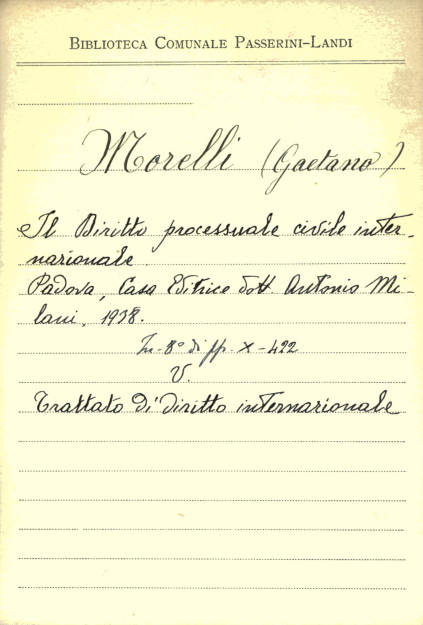 BIBLIOTECA COMUNALE PASSERINI-LANDI
Morelli (Gaetano)
Il Diritto processuale civile inter-
nazionale.
Padova, Casa Editrice dott. Antonio Mi-
lani, 1938.
In-8° di pp. X-422
V.
Trattato di diritto internazionale